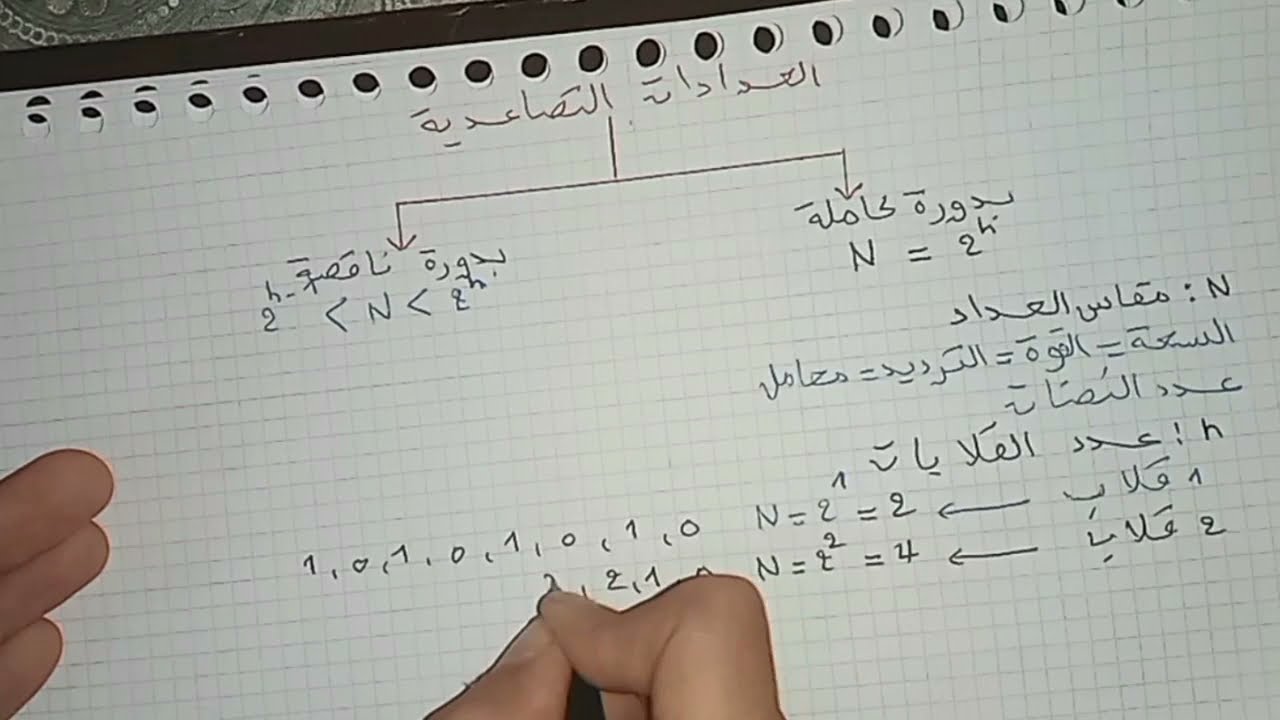 العدادات التصاعدية
بدورة كاملة
N = 2^n
بدورة ناقصة
2^n-1 < N < 2^n
N : مقاس العداد
السعة = القوة = الترديد = معامل
عدد النبضات
n : عدد القلابات
1 قلاب ← N = 2^1 = 2 0, 1, 0, 1, 0, 1, 0, 1
2 قلاب ← N = 2^2 = 4 0, 1, 2,